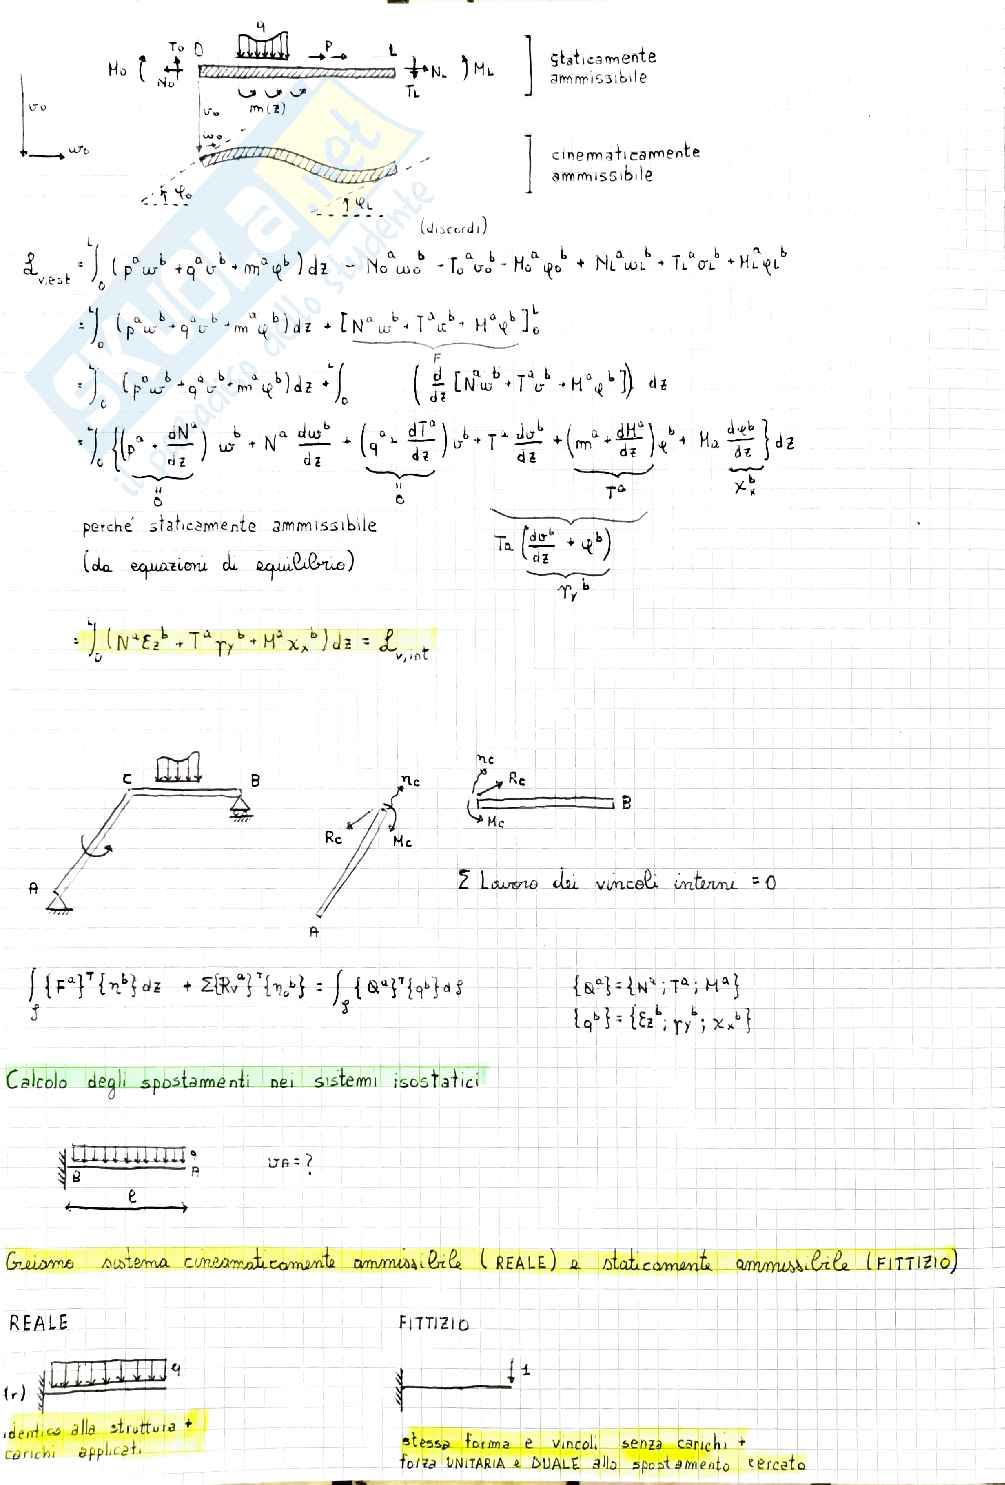 q
T₀ O P L
M₀ N₀ N_L M_L
T_L
m(z)
v₀
w₀
v₀
w₀
φ₀ φ_L
staticamente
ammissibile
cinematicamente
ammissibile
(discordi)
𝓛v,est = ∫₀ᴸ (pᵃwᵇ + qᵃvᵇ + mᵃφᵇ) dz - N₀ᵃw₀ᵇ - T₀ᵃv₀ᵇ - M₀ᵃφ₀ᵇ + N_Lᵃw_Lᵇ + T_Lᵃv_Lᵇ + M_Lᵃφ_Lᵇ
= ∫₀ᴸ (pᵃwᵇ + qᵃvᵇ + mᵃφᵇ) dz + [Nᵃwᵇ + Tᵃvᵇ + Mᵃφᵇ]₀ᴸ
F
= ∫₀ᴸ (pᵃwᵇ + qᵃvᵇ + mᵃφᵇ) dz + ∫₀ᴸ (d/dz [Nᵃwᵇ + Tᵃvᵇ + Mᵃφᵇ]) dz
= ∫₀ᴸ {(pᵃ + dNᵃ/dz) wᵇ + Nᵃ dwᵇ/dz + (qᵃ + dTᵃ/dz) vᵇ + Tᵃ dvᵇ/dz + (mᵃ + dMᵃ/dz) φᵇ + Ma dφᵇ/dz} dz
= 0 = 0 Tᵃ χₓᵇ
perché staticamente ammissibile
(da equazioni di equilibrio)
Ta (dvᵇ/dz + φᵇ)
γyᵇ
= ∫₀ᴸ (Nᵃεzᵇ + Tᵃγyᵇ + Mᵃχₓᵇ) dz = 𝓛v,int
C B
A
ηc
Rc Mc
A
ηc
Rc
B
Mc
Σ Lavoro dei vincoli interni = 0
∫ {Fᵃ}ᵀ {ηᵇ} dz + Σ{Rvᵃ}ᵀ {η₀ᵇ} = ∫ {Qᵃ}ᵀ {qᵇ} dƒ
{Qᵃ} = {Nᵃ; Tᵃ; Mᵃ}
{qᵇ} = {εzᵇ; γyᵇ; χₓᵇ}
Calcolo degli spostamenti nei sistemi isostatici
q
B A
ℓ
vA = ?
Creiamo sistema cineamaticamente ammissibile (REALE) e staticamente ammissibile (FITTIZIO)
REALE
FITTIZIO
(r) q
1
identica alla struttura +
carichi applicati
stessa forma e vincoli senza carichi +
forza UNITARIA e DUALE allo spostamento cercato
SKUOLA.net
il paradiso dello studente